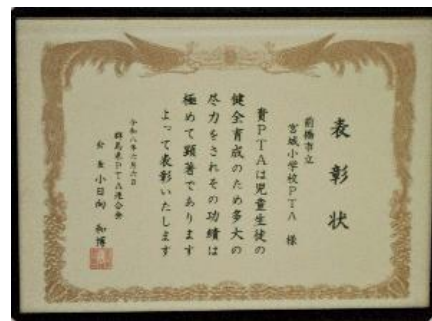 表彰状
前橋市立
宮城小学校PTA 様
貴PTAは児童生徒の
健全育成のため多大の
尽力をされその功績は
極めて顕著であります
よって表彰いたします
令和八年六月六日
群馬県PTA連合会
会長 小日向 和博